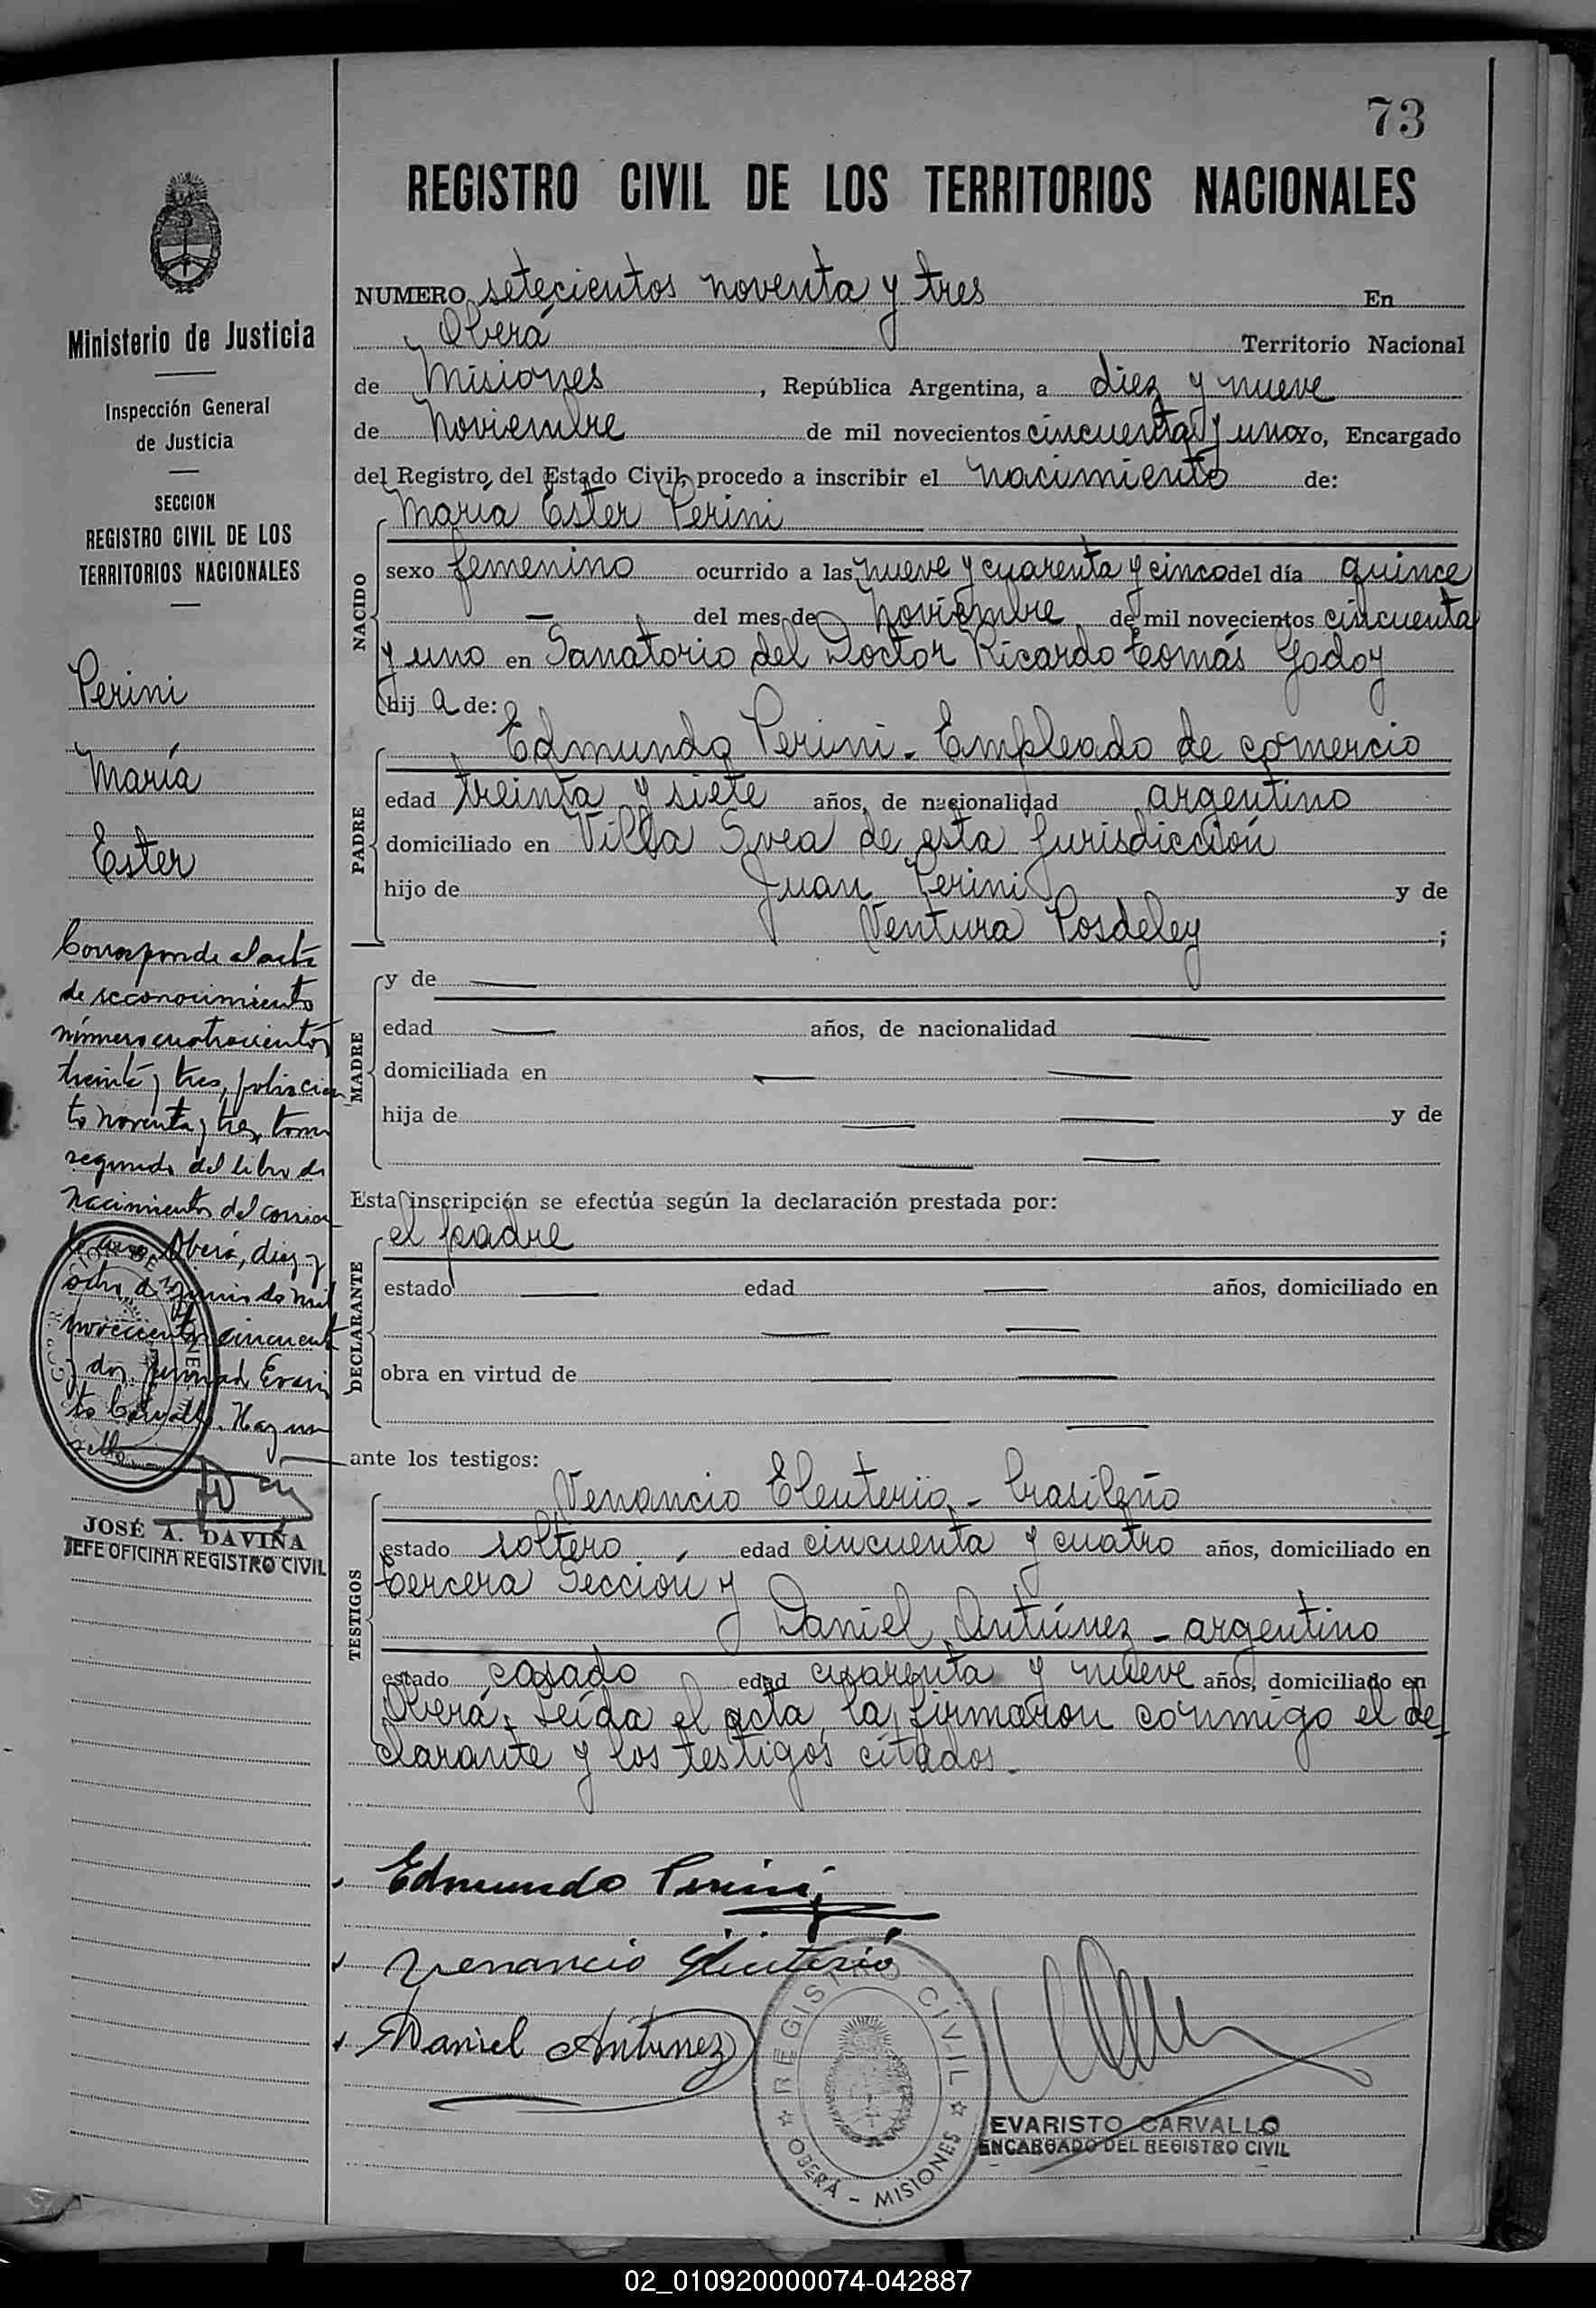 73
REGISTRO CIVIL DE LOS TERRITORIOS NACIONALES
NUMERO setecientos noventa y tres En
Oberá Territorio Nacional
de Misiones, República Argentina, a diez y nueve
de Noviembre de mil novecientos cincuenta y uno Yo, Encargado
del Registro del Estado Civil, procedo a inscribir el nacimiento de:
María Ester Perini
NACIDO
sexo femenino ocurrido a las nueve y cuarenta y cinco del día quince
— del mes de Noviembre de mil novecientos cincuenta
y uno en Sanatorio del Doctor Ricardo Tomás Godoy
hij a de:
PADRE
Edmundo Perini - Empleado de comercio
edad treinta y siete años, de nacionalidad argentino
domiciliado en Villa Svea de esta jurisdicción
hijo de Juan Perini y de
Ventura Posdeley ;
MADRE
y de —
edad — años, de nacionalidad —
domiciliada en — —
hija de — — y de
— —
Esta inscripción se efectúa según la declaración prestada por:
DECLARANTE
el padre
estado — edad — años, domiciliado en
— —
obra en virtud de — —
— —
ante los testigos:
TESTIGOS
Venancio Eleuterio - brasileño
estado soltero edad cincuenta y cuatro años, domiciliado en
tercera Sección y
Daniel Antúnez - argentino
estado casado edad cuarenta y nueve años, domiciliado en
Oberá; Leída el acta, la firmaron conmigo el de-
clarante y los testigos citados.
Edmundo Perini
Venancio Eleuterio
Daniel Antunez
REGISTRO CIVIL
OBERÁ - MISIONES
EVARISTO CARVALLO
ENCARGADO DEL REGISTRO CIVIL
Ministerio de Justicia
Inspección General
de Justicia
SECCION
REGISTRO CIVIL DE LOS
TERRITORIOS NACIONALES
Perini
María
Ester
Corresponde al acta
de reconocimiento
número cuatrocientos
treinta y tres, folio cien
to noventa y tres, tomo
segundo del libro de
nacimientos del corrien
te año. Oberá, diez y
ocho de Junio de mil
novecientos cincuenta
y dos. firmado Evaris
to Carvallo. Hay un
sello
JOSÉ A. DAVIÑA
JEFE OFICINA REGISTRO CIVIL
02_010920000074-042887